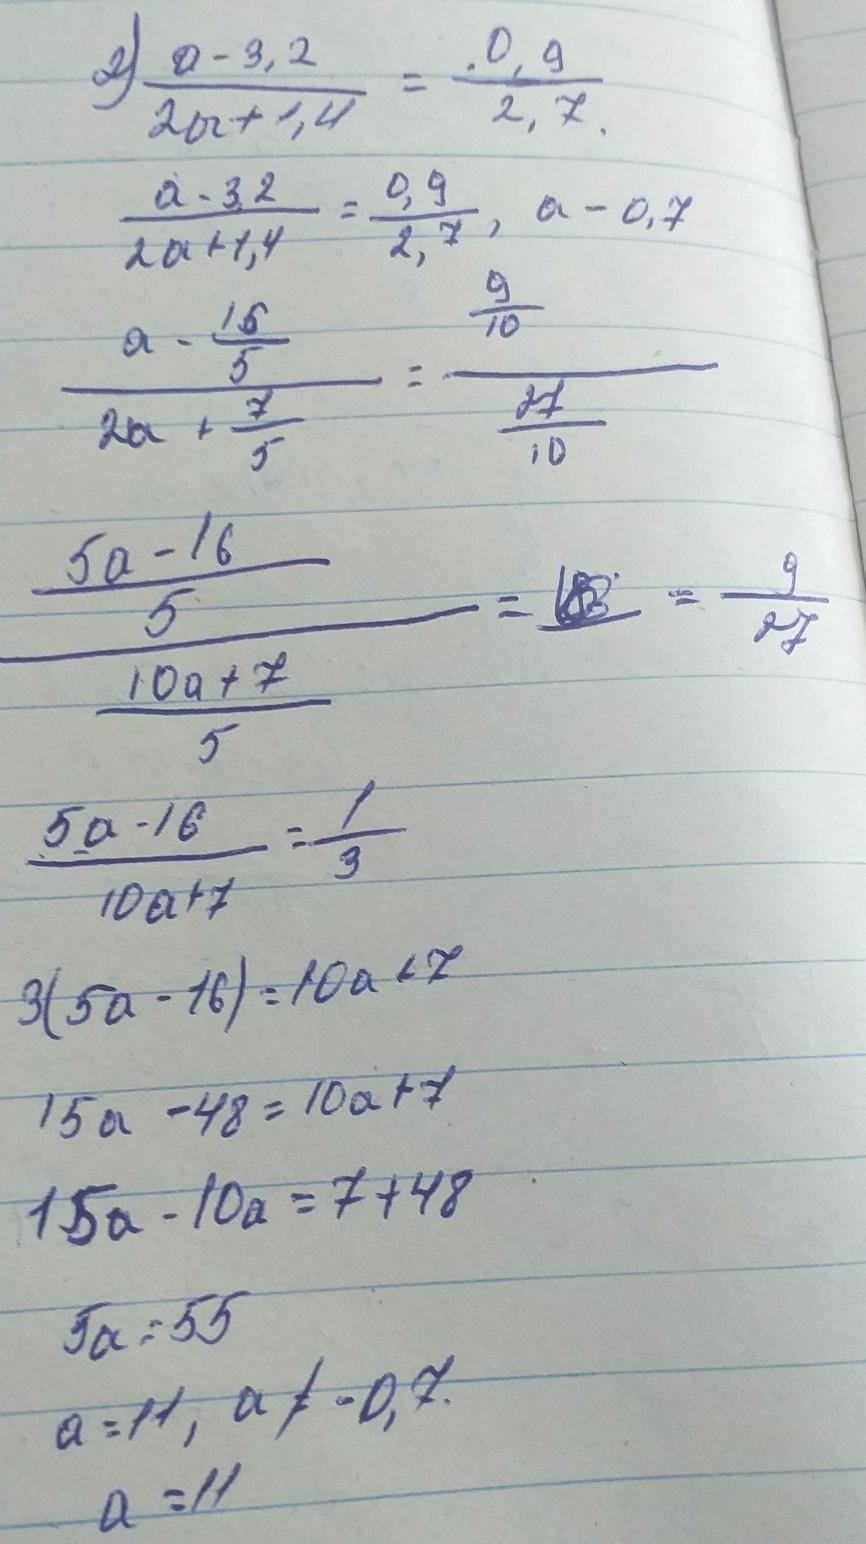 2) (a - 3,2)/(2a + 1,4) = 0,9/2,7.
(a - 3,2)/(2a + 1,4) = 0,9/2,7, a - 0,7
(a - 16/5)/(2a + 7/5) = (9/10)/(27/10)
((5a - 16)/5)/((10a + 7)/5) = = 9/27
(5a - 16)/(10a + 7) = 1/3
3(5a - 16) = 10a + 7
15a - 48 = 10a + 7
15a - 10a = 7 + 48
5a = 55
a = 11, a ≠ -0,7.
a = 11